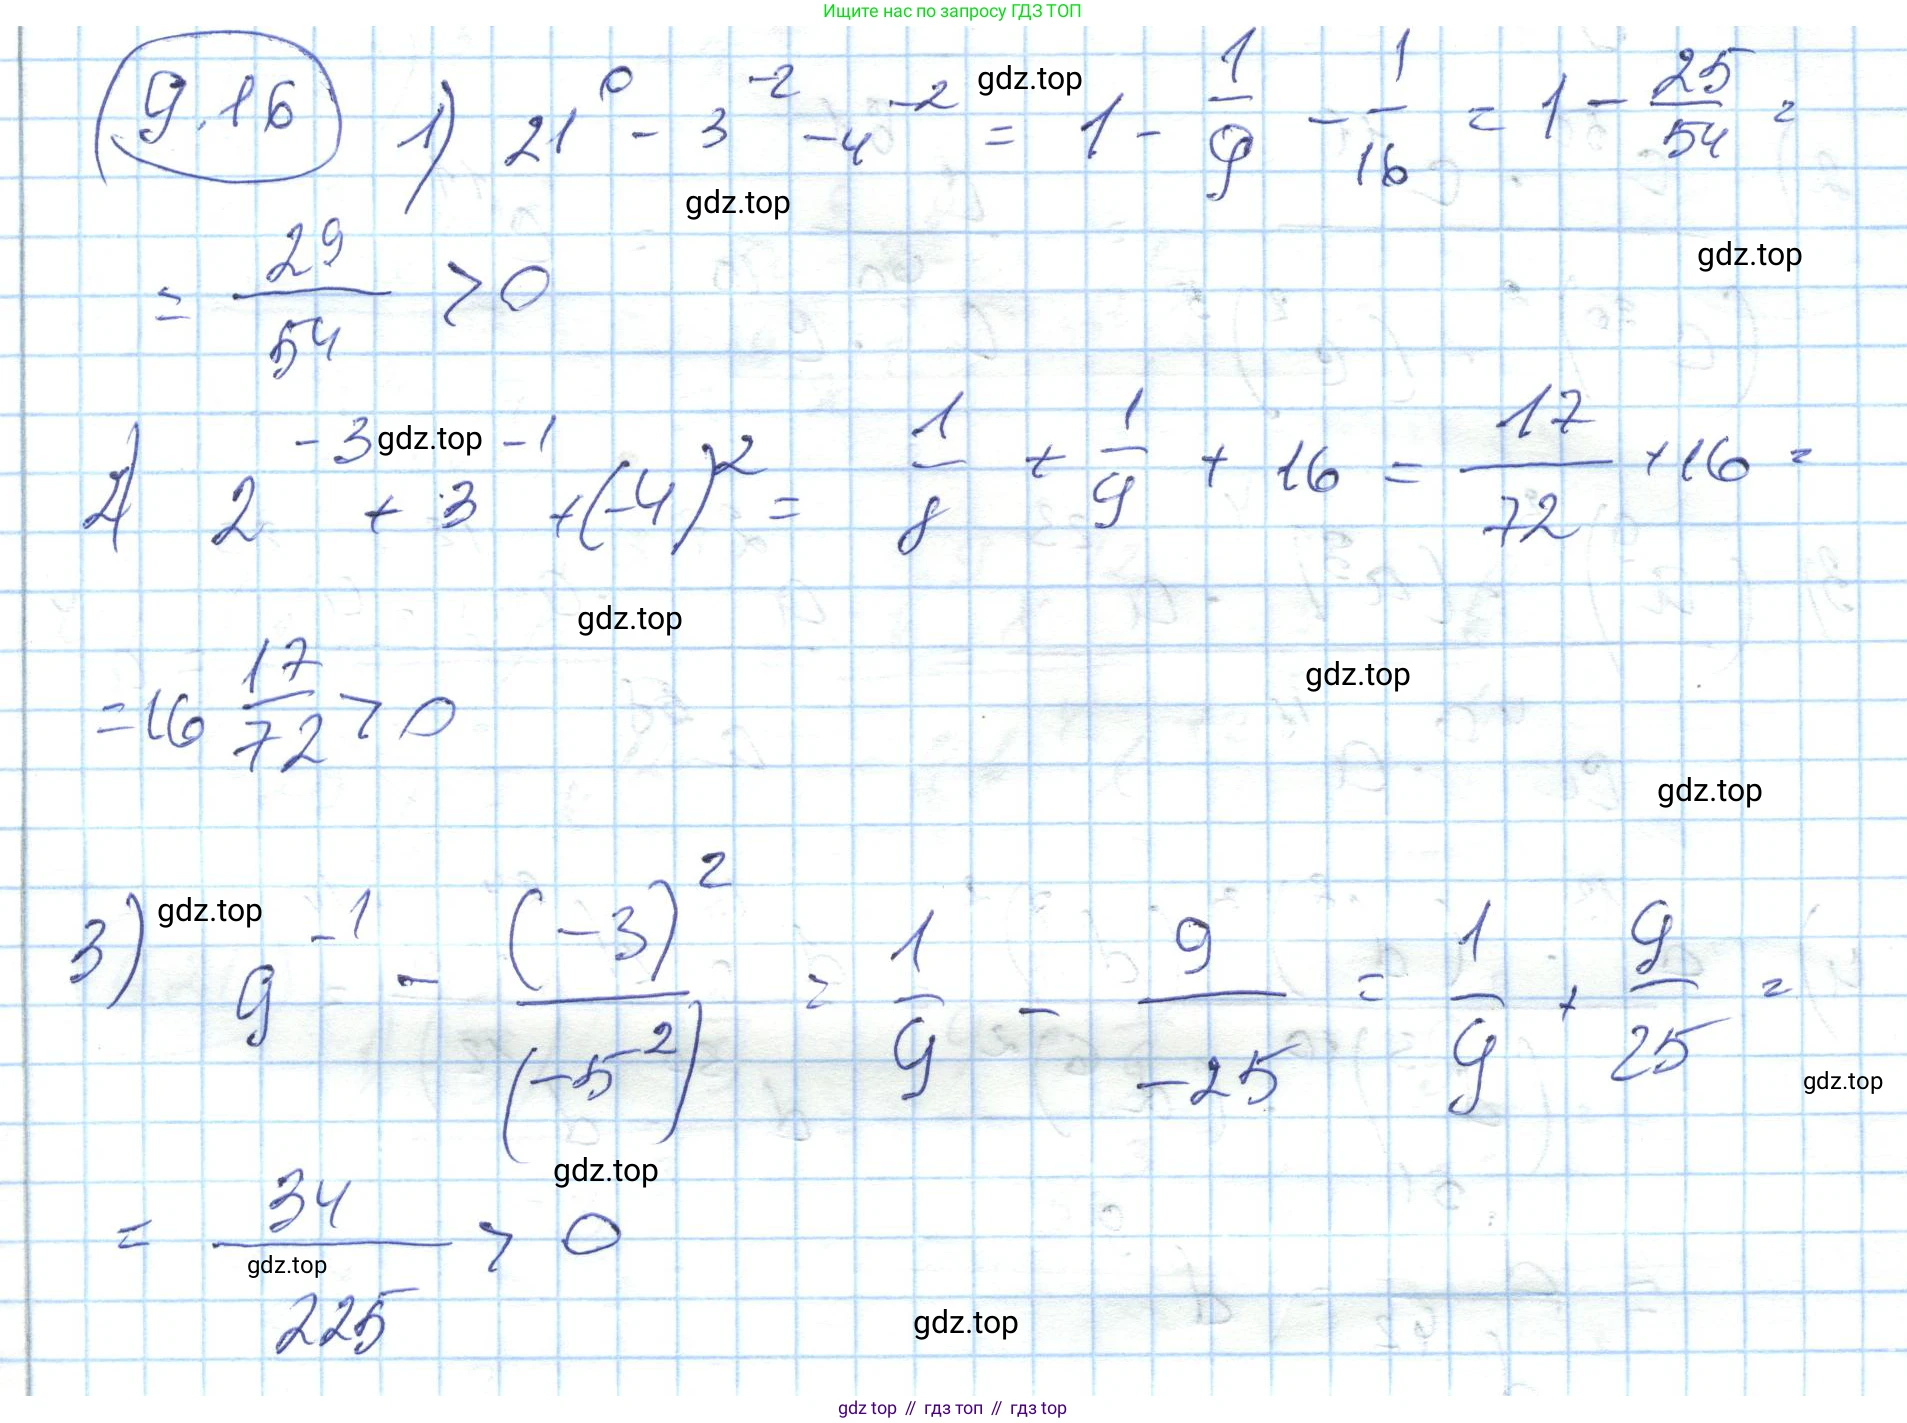 Ищите нас по запросу ГДЗ ТОП
9.16 1) 21⁰ - 3⁻² - 4⁻² = 1 - 1/9 - 1/16 = 1 - 25/54 =
gdz.top
gdz.top
gdz.top
= 29/54 > 0
2) 2⁻³ + 3⁻¹ + (-4)² = 1/8 + 1/9 + 16 = 17/72 + 16 =
gdz.top
gdz.top
gdz.top
= 16 17/72 > 0
gdz.top
3) 9⁻¹ - (-3)²/(-5²) = 1/9 - 9/-25 = 1/9 + 9/25 =
gdz.top
gdz.top
gdz.top
= 34/225 > 0
gdz.top
gdz.top
gdz top // гдз топ // гдз top